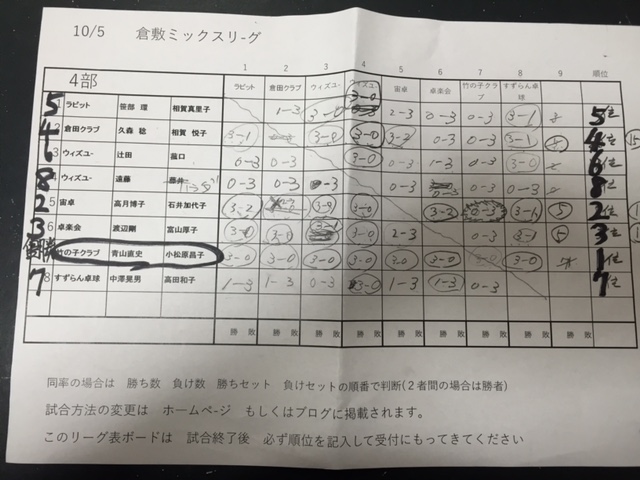 10/5 倉敷ミックスリ-グ
1 2 3 4 5 6 7 8 9 順位
4部 ラビット 倉田クラブ ウィズユ- ウィズユ- 宙卓 卓楽会 竹の子クラブ すずらん卓球
5 1 ラビット 笹部 理 相賀真里子 1-3 3-0 3-0 2-3 0-3 0-3 3-1 5位
4 2 倉田クラブ 久森 稔 相賀 悦子 3-1 3-0 3-0 3-2 0-3 0-3 3-1 4位
6 3 ウィズユ- 辻田 菰口 0-3 0-3 3-0 0-3 1-3 0-3 3-0 6位
8 4 ウィズユ- 遠藤 0-3 0-3 0-3 0-3 0-3 0-3 0-3 8位
2 5 宙卓 高月博子 石井加代子 3-2 2-3 3-0 3-0 3-2 0-3 3-1 5 2位
3 6 卓楽会 渡辺剛 富山厚子 3-0 3-0 3-1 3-0 2-3 0-3 3-1 5 3位
優勝 竹の子クラブ 青山直史 小松原昌子 3-0 3-0 3-0 3-0 3-0 3-0 3-0 1位
7 8 すずらん卓球 中澤晃男 高田和子 1-3 1-3 0-3 3-0 1-3 1-3 0-3 7位
勝 敗 勝 敗 勝 敗 勝 敗 勝 敗 勝 敗 勝 敗 勝 敗 勝 敗
同率の場合は 勝ち数 負け数 勝ちセット 負けセットの順番で判断(2者間の場合は勝者)
試合方法の変更は ホームページ もしくはブログに掲載されます。
このリーグ表ボードは 試合終了後 必ず順位を記入して受付にもってきてください